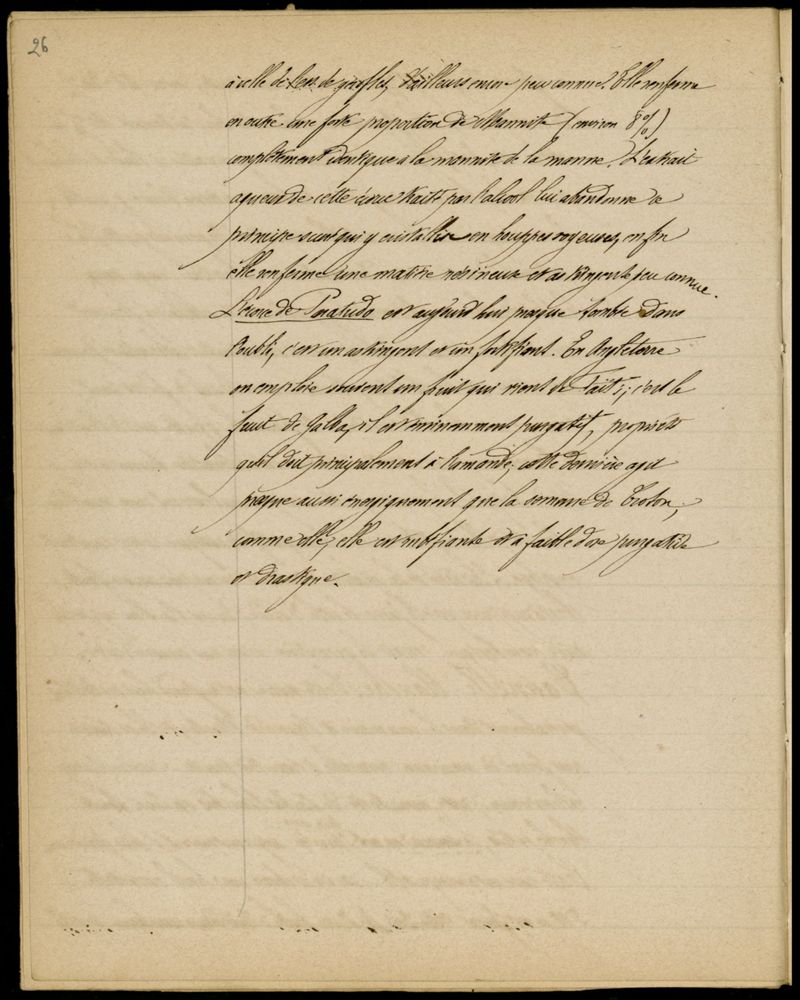 26
à celle de l'ess. de girofles, d'ailleurs encore peu connue. Elle renferme
en outre une forte proportion de Mannite (environ 8%)
complètement identique à la mannite de la manne. L'extrait
aqueux de cette écorce traité par l'alcool lui abandonne ce
principe sucré qui y cristallise en houppes soyeuses, enfin
elle renferme une matière résineuse et astringente peu connue.
L'écorce de Paratudo est aujourd'hui presque tombée dans
l'oubli, c'est un astringent et un fortifiant. En Angleterre
on emploie souvent un fruit qui vient de ; c'est le
fruit de , il est éminemment purgatif, propriété
qu'il doit principalement à l'amande, cette dernière agit
presque aussi énergiquement que la semence de Croton,
comme elle, elle est rubéfiante et à faible dose purgative
et drastique.